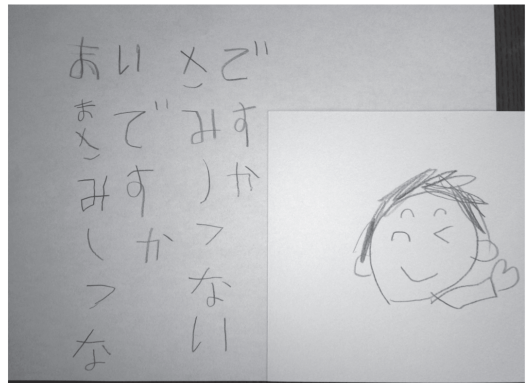 あまさみしくな
いですか
さみしくない
ですか